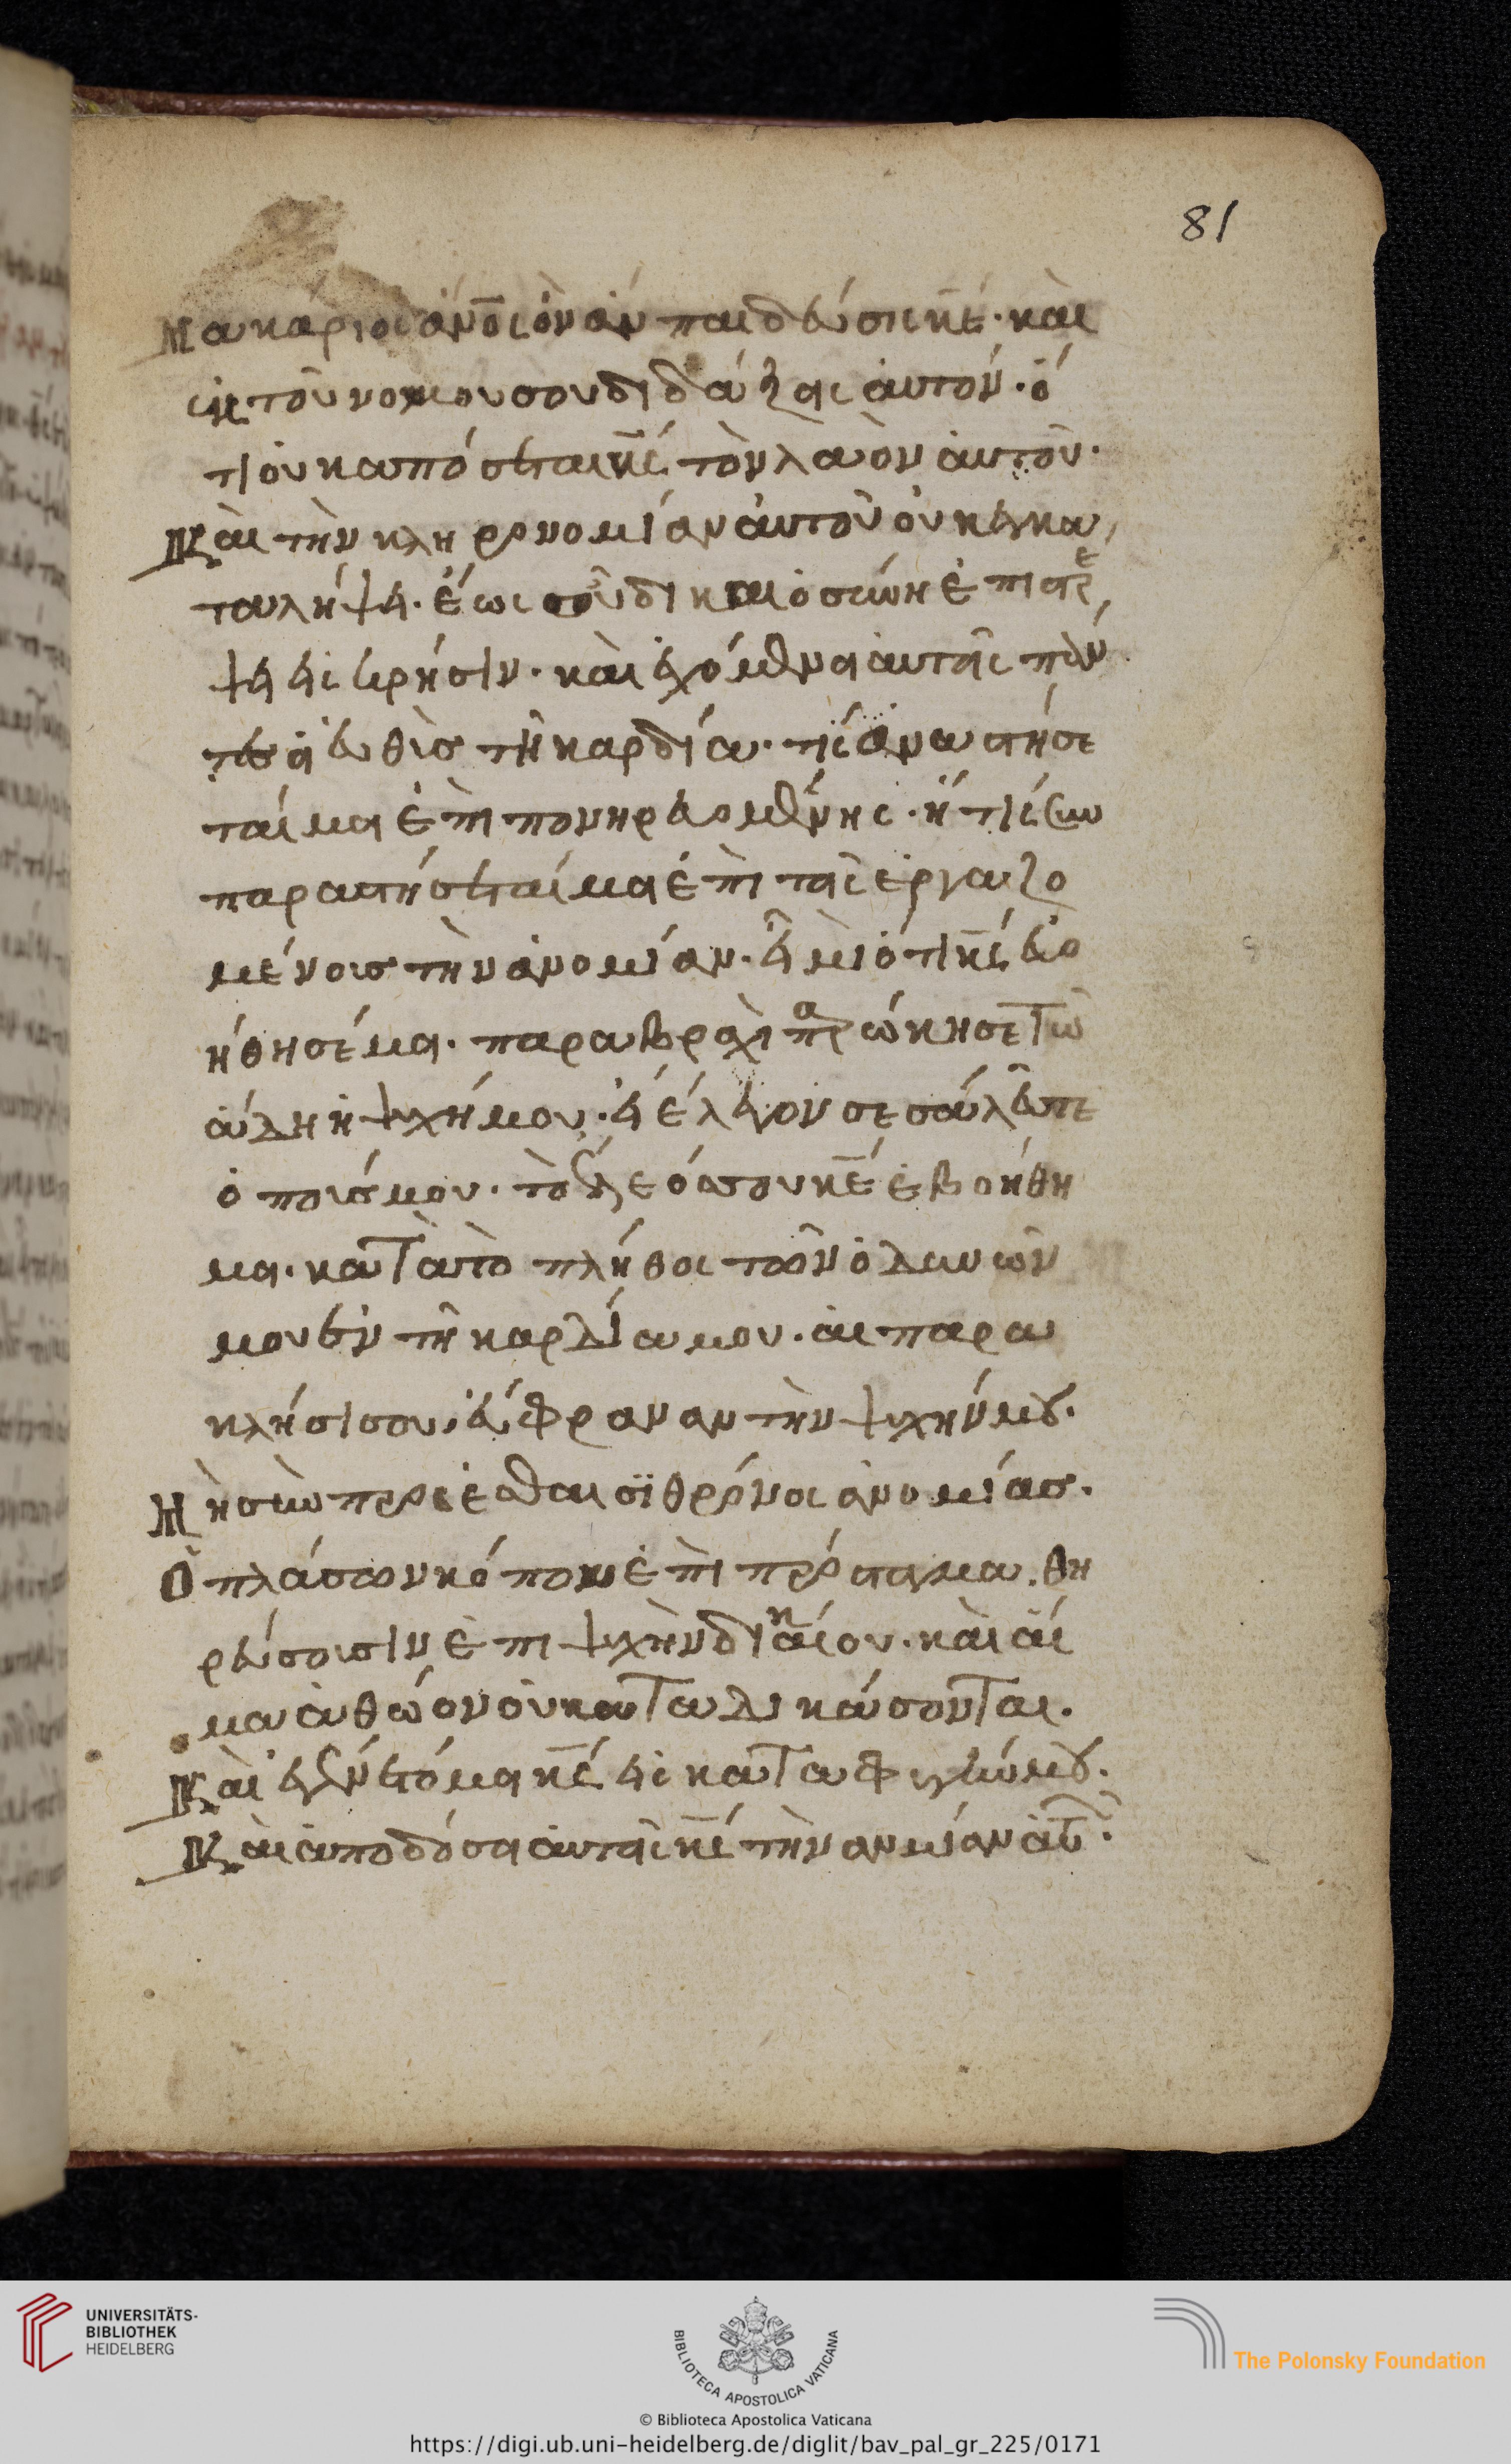 81
Μακάριος ἄνο̅ς ὃν ἂν παιδεύσις κε̅. καὶ
ἐκ τοῦ νομου σου διδάξεις αὐτόν. ὅ
τι οὐκ απόσεται κς̅ τὸν λαὸν αὐτοῦ.
Καὶ τὴν κληρονομίαν αὐτοῦ οὐκ εγκα
ταλήψει. ἕως οὗ δικαιοσύνη ἐπιστρέ
ψει εἰς κρήσιν. καὶ εχόμενοι αὐτῆς πάν
τες οἱ ευθὶς τῆ καρδία. τίς ἀναστήσε
ταί μοι ἐπὶ πονηρευομένης. ἢ τίς συμ
παραστήσεταί μοι ἐπὶ τοῖς ἐργαζο
μένοις τὴν ἀνομίαν. εἰ μὶ ὅτι κς̅ ἐβο
ήθησέ μοι. παρα βραχὶ παρώκησε τῶ
ἅδη ἡ ψυχή μου. εἰ έλεγον σεσάλευτε
ὁ ποῦς μου. τὸ έλεός σου κε̅ ἐβοήθη
μοι. κατὰ τὸ πλήθος τῶν ὀδυνῶν
μου ἐν τῆ καρδία μου. αἱ παρα
κλήσις σου, εὔφραναν τὴν ψυχήν μου.
Μὴ συμπροσέσται σοι θρόνος ἀνομίας.
Ὁ πλάσων κόπον ἐπὶ πρόσταγμα. θη
ρεύσουσιν ἐπι ψυχὴν δικαίου. καὶ αἷ
μα ἀθώον οὐ καταδικάσονται.
Καὶ εγένετό μοι κς̅ εἰς καταφυγήν μου.
Καὶ ἀποδόσει αὐτοῖς κς̅ τὴν ανμίαν αὐτ.
UNIVERSITÄTS-
BIBLIOTHEK
HEIDELBERG
BIBLIOTECA APOSTOLICA VATICANA
The Polonsky Foundation
© Biblioteca Apostolica Vaticana
https://digi.ub.uni-heidelberg.de/diglit/bav_pal_gr_225/0171